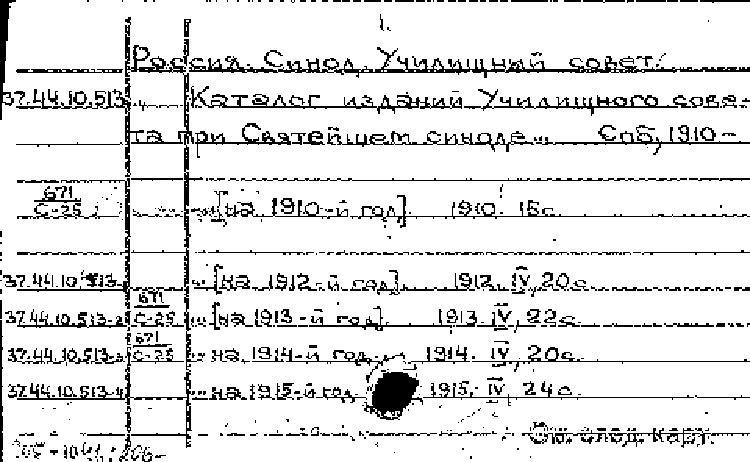 1.
Россия. Синод. Училищный совет.
37.44.10.513 Каталог изданий Училищного сове-
та при Святейшем синоде... Спб, 1910-
671
С-25 [на 1910-й год]. 1910. 15с.
37.44.10.513- ... [на 1912-й год]. 1912. IV, 20с.
671
37.44.10.513-2 С-25 ... [на 1913-й год]. 1913. IV, 22с.
671
37.44.10.513-3 С-25 ... на 1914-й год. 1914. IV, 20с.
37.44.10.513-4 ... на 1915-й год 1915. IV, 24с.
См. след. карт.